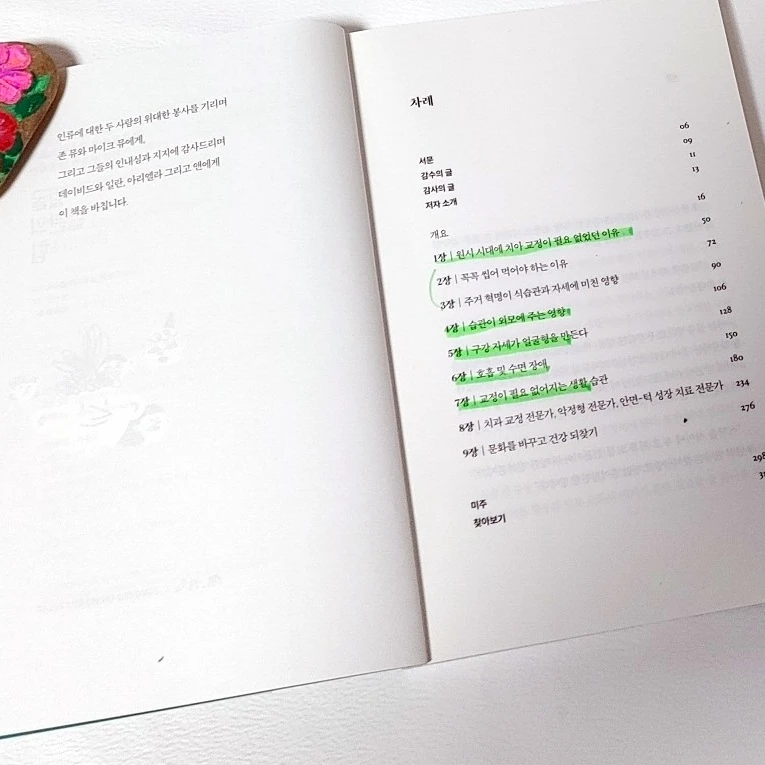 인류에 대한 두 사람의 위대한 봉사를 기리며
존 뮤와 마이크 뮤에게,
그리고 그들의 인내심과 지지에 감사드리며
데이비드와 일란, 아리엘라 그리고 앤에게
이 책을 바칩니다.
차례
서문 06
감수의 글 09
감사의 글 11
저자 소개 13
개요 16
1장 | 원시 시대에 치아 교정이 필요 없었던 이유 50
2장 | 꼭꼭 씹어 먹어야 하는 이유 72
3장 | 주거 혁명이 식습관과 자세에 미친 영향 90
4장 | 습관이 외모에 주는 영향 106
5장 | 구강 자세가 얼굴형을 만든다 128
6장 | 호흡 및 수면 장애 150
7장 | 교정이 필요 없어지는 생활 습관 180
8장 | 치과 교정 전문가, 악정형 전문가, 안면-턱 성장 치료 전문가 234
9장 | 문화를 바꾸고 건강 되찾기 276
미주 298
찾아보기